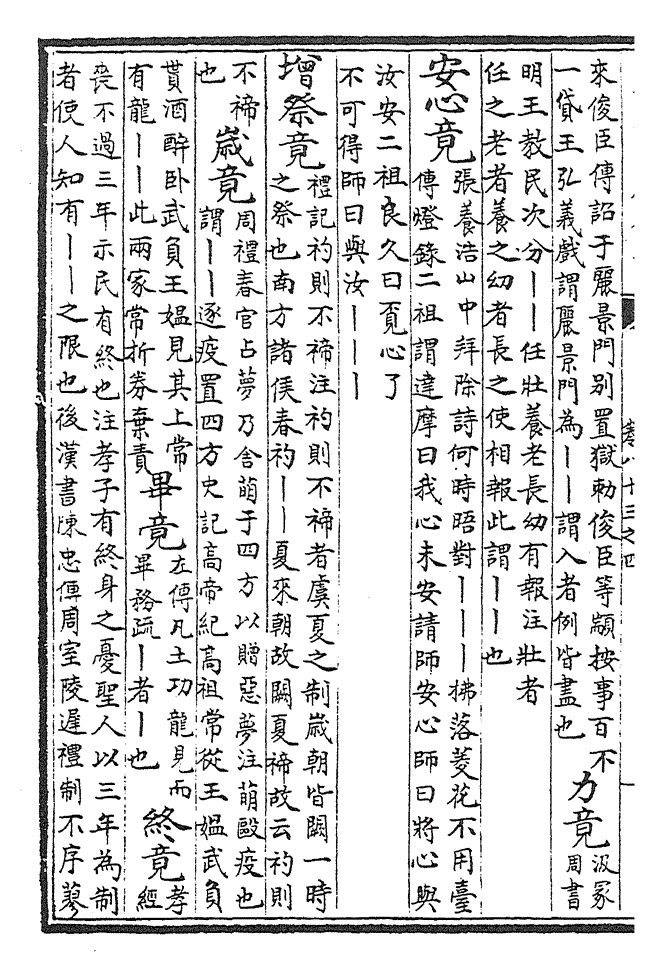 卷八十三之四
來俊臣傳詔于麗景門别置獄勅俊臣等顓按事百不
一貸王弘義戲謂麗景門為丨丨謂入者例皆盡也
力竟
汲冢
周書
明王教民次分丨丨任壯養老長幼有報注壯者
任之老者養之幼者長之使相報此謂丨丨也
安心竟
張養浩山中拜除詩何時晤對丨丨丨拂落菱花不用臺
傳燈錄二祖謂達摩曰我心未安請師安心師曰將心與
汝安二祖良久曰覔心了
不可得師曰與汝丨丨丨
增祭竟
禮記礿則不禘注礿則不禘者虞夏之制歲朝皆闕一時
之祭也南方諸侯春礿丨丨夏來朝故闕夏禘故云礿則
不禘
也
歲竟
周禮春官占夢乃舍萌于四方以贈惡夢注萌毆疫也
謂丨丨逐疫置四方史記高帝紀高祖常從王媼武負
貰酒醉卧武負王媼見其上常
有龍丨丨此兩家常折券棄責
畢竟
左傳凡土功龍見而
畢務疏丨者丨也
終竟
孝
經
喪不過三年示民有終也注孝子有終身之憂聖人以三年為制
者使人知有丨丨之限也後漢書陳忠傳周室陵遲禮制不序蓼